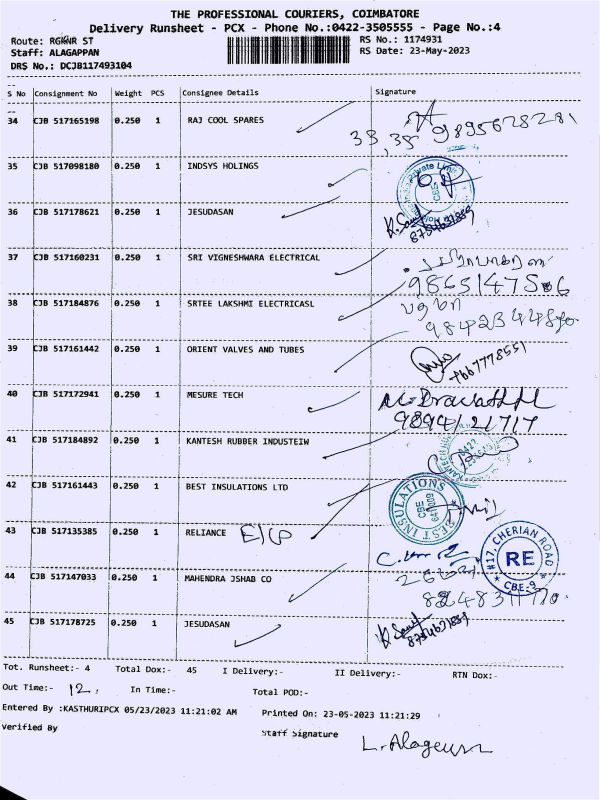 THE PROFESSIONAL COURIERS, COIMBATORE
Delivery Runsheet - PCX - Phone No.:0422-3505555 - Page No.:4
Route: RGKNR ST RS No.: 1174931
Staff: ALAGAPPAN RS Date: 23-May-2023
DRS No.: DCJB117493104
S No Consignment No Weight PCS Consignee Details Signature
34 CJB 517165198 0.250 1 RAJ COOL SPARES
9895628281
35 CJB 517098180 0.250 1 INDSYS HOLINGS
Private Limi
CBE
36 CJB 517178621 0.250 1 JESUDASAN
8754631859
37 CJB 517160231 0.250 1 SRI VIGNESHWARA ELECTRICAL
38 CJB 517184876 0.250 1 SRTEE LAKSHMI ELECTRICASL
39 CJB 517161442 0.250 1 ORIENT VALVES AND TUBES
7667778551
40 CJB 517172941 0.250 1 MESURE TECH
9894121717
41 CJB 517184892 0.250 1 KANTESH RUBBER INDUSTEIW
42 CJB 517161443 0.250 1 BEST INSULATIONS LTD
BEST INSULATIONS
CBE
43 CJB 517135385 0.250 1 RELIANCE
#17, CHERIAN ROAD
RE
CBE-9
44 CJB 517147033 0.250 1 MAHENDRA JSHAB CO
45 CJB 517178725 0.250 1 JESUDASAN
8754631859
Tot. Runsheet:- 4 Total Dox:- 45 I Delivery:- II Delivery:- RTN Dox:-
Out Time:- 12, In Time:- Total POD:-
Entered By :KASTHURIPCX 05/23/2023 11:21:02 AM Printed On: 23-05-2023 11:21:29
Verified By Staff Signature